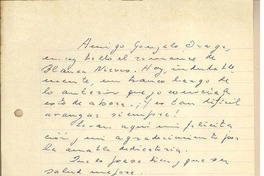 Amigo Gonzalo Drago,
muy bello el romance de
Blanca Nieves. Hoy, indudable-
mente, un tranco largo de
lo anterior que yo conocía
esto de ahora. ¡Y es tan difícil
avanzar siempre!
Llevan aquí mi felicita-
ción y mi agradecimiento por
la amable dedicatoria.
que pase bien y que su
salud mejore.